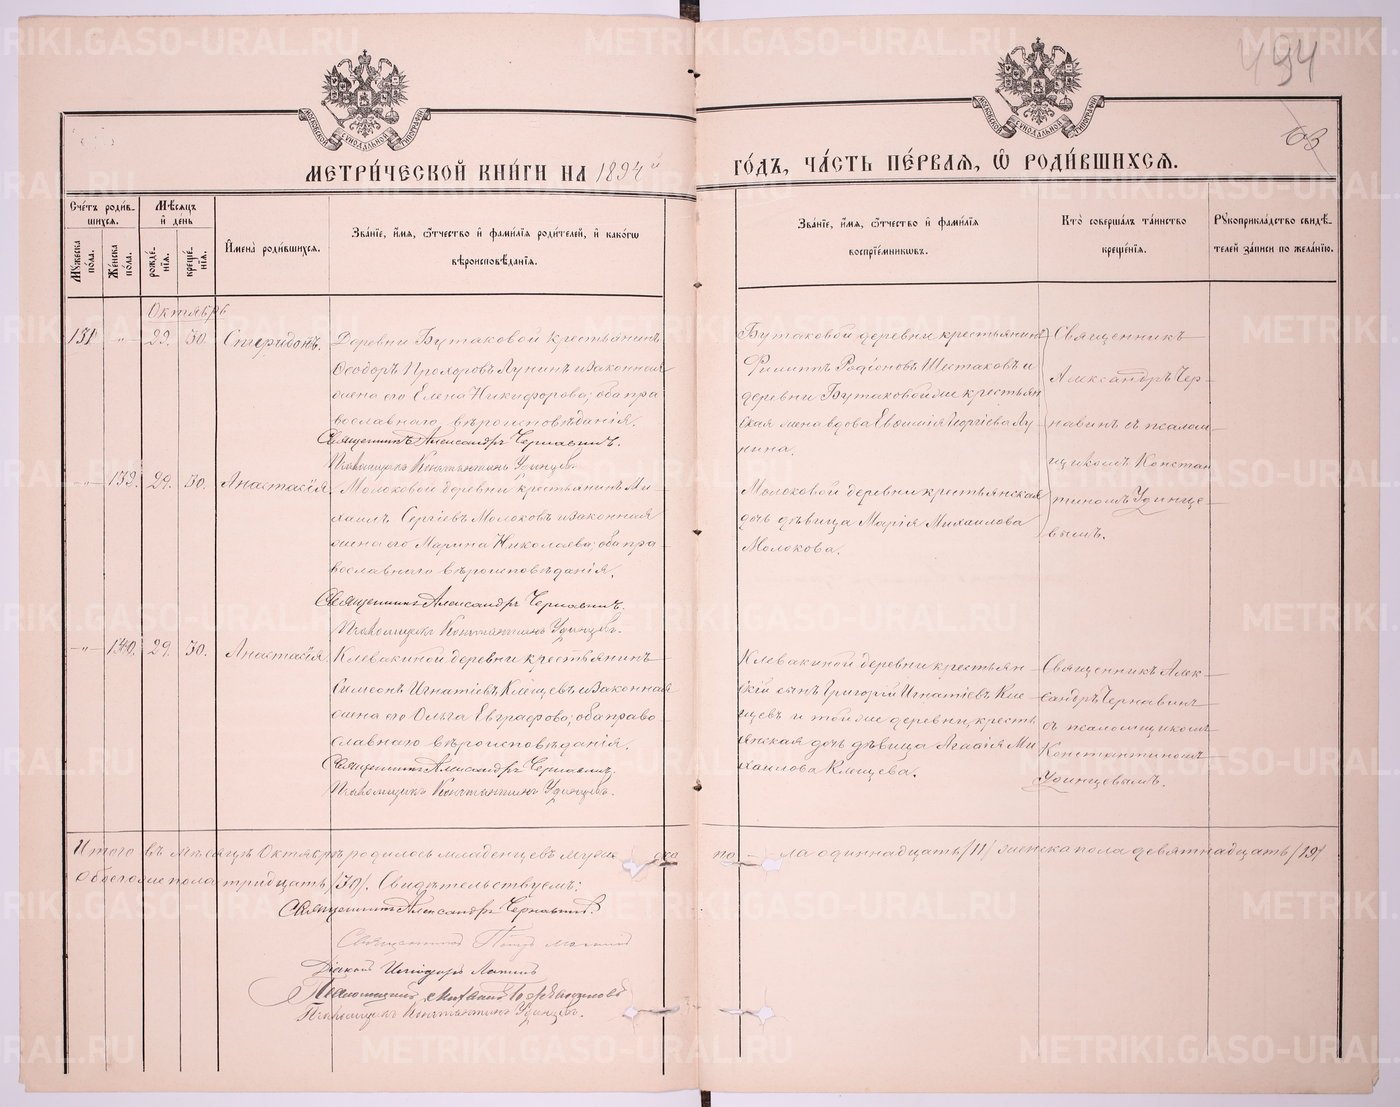 METRIKI.GASO-URAL.RU
494
63
МЕТРИ́ЧЕСКОЙ КНИ́ГИ НА 1894й
ГО́ДЪ, ЧА́СТЬ ПЕ́РВАЯ, Ѡ РОДИ́ВШИХСЯ.
МОСКОВСКОЙ СѴНОДАЛЬНОЙ ТИПОГРАФІИ
МОСКОВСКОЙ СѴНОДАЛЬНОЙ ТИПОГРАФІИ
Сче́тъ роди́в-
шихся.
Му́жеска по́ла.
Же́нска по́ла.
Мѣ́сяцъ
и҆ день
рожде́-
нія.
креще́-
нія.
И҆мена̀ роди́вшихся.
Зва́ніе, и҆́мя, ѻ҆́тчество и҆ фами́лія роди́телей, и҆ како́гѡ
вѣроисповѣ́данія.
Зва́ніе, и҆́мя, ѻ҆́тчество и҆ фами́лія
воспріе́мникѡвъ.
Кто̀ соверша́лъ та́инство
креще́нія.
Рукоприкла́дство свидѣ́-
телей за́писи по жела́нію.
Октябрь
131 " 29. 30. Спиридонъ.
Деревни Бутаковой крестьянинъ
Ѳеодоръ Прохоровъ Лунинъ и законная
жена его Елена Никифорова; оба пра
вославнаго вѣроисповѣданія.
Священникъ Александръ Чернавинъ.
Псаломщикъ Константинъ Удинцевъ.
Бутаковой деревни крестьянинъ
Филиппъ Родіоновъ Шестаковъ и
деревни Бутаковой же крестьян
ская жена вдова Евѳимія Георгіева Лу
нина.
Священникъ
Александръ Чер-
навинъ съ псалом-
щикомъ Констан
тиномъ Удинце-
вымъ.
" 139. 29. 30. Анастасія.
Молоковой деревни крестьянинъ Ми
хаилъ Сергіевъ Молоковъ и законная
жена его Марина Николаева; оба пра
вославнаго вѣроисповѣданія.
Священникъ Александръ Чернавинъ.
Псаломщикъ Константинъ Удинцевъ.
Молоковой деревни крестьянская
дочь дѣвица Марія Михаилова
Молокова.
" 140. 29. 30. Анастасія
Клевакиной деревни крестьянинъ
Симеонъ Игнатіевъ Клещевъ и законная
жена его Ольга Евграфова; оба право
славнаго вѣроисповѣданія.
Священникъ Александръ Чернавинъ.
Псаломщикъ Константинъ Удинцевъ.
Клевакиной деревни крестьян-
скій сынъ Григорій Игнатіевъ Кле
щевъ и той же деревни кресть
янская дочь дѣвица Агаѳія Ми
хаилова Клещева.
Священникъ Алек-
сандръ Чернавинъ
съ псаломщикомъ
Константиномъ
Удинцевымъ.
Итого въ мѣсяцѣ Октябрѣ родилось младенцевъ мужеска по-ла одиннадцать /11/ женска пола девятнадцать /19/
Обоего же пола тридцать /30/. Свидѣтельствуемъ:
Священникъ Александръ Чернавинъ.
Священникъ Петръ
Діаконъ
Псаломщикъ Михаилъ
Псаломщикъ Константинъ Удинцевъ.